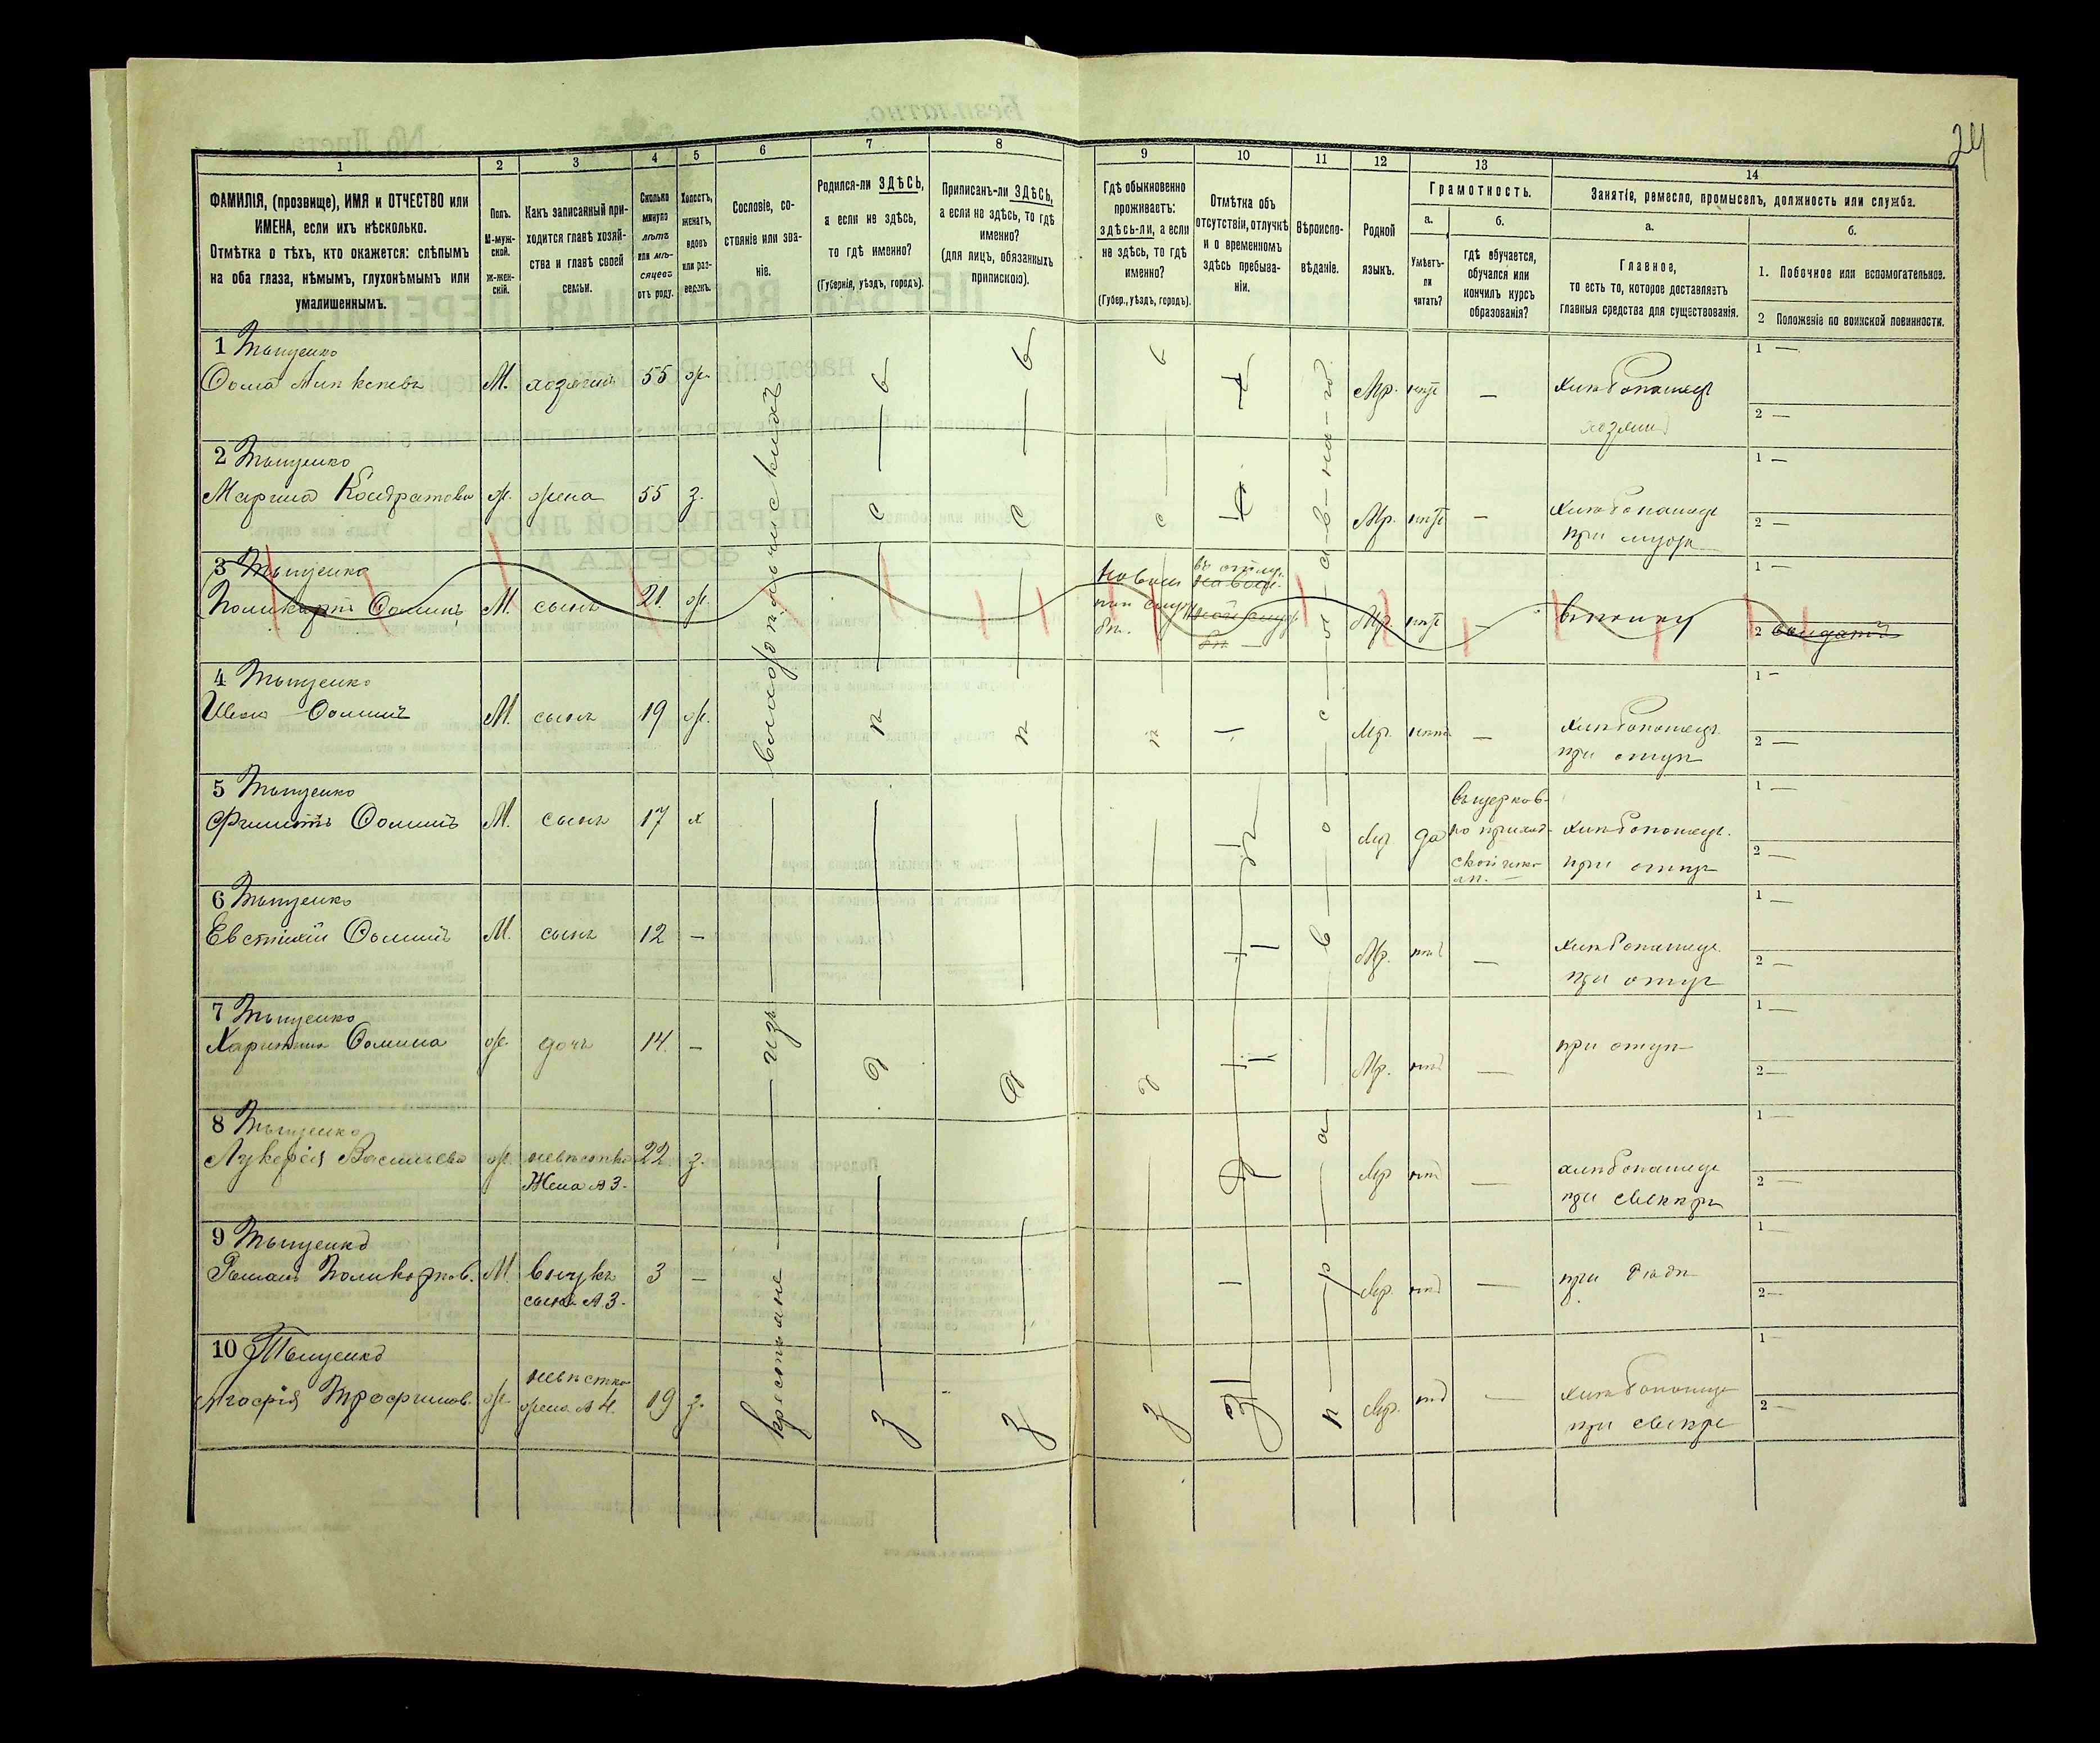 24
1
2
3
4
5
6
7
8
9
10
11
12
13
14
ФАМИЛІЯ, (прозвище), ИМЯ и ОТЧЕСТВО или
ИМЕНА, если ихъ нѣсколько.
Отмѣтка о тѣхъ, кто окажется: слѣпымъ
на оба глаза, нѣмымъ, глухонѣмымъ или
умалишеннымъ.
Полъ.
М-муж-
ской.
Ж-жен-
скій.
Какъ записанный при-
ходится главѣ хозяй-
ства и главѣ своей
семьи.
Сколько
минуло
лѣтъ
или мѣ-
сяцевъ
отъ роду.
Холостъ,
женатъ,
вдовъ
или раз-
веденъ.
Сословіе, со-
стояніе или зва-
ніе.
Родился-ли ЗДѢСЬ,
а если не здѣсь,
то гдѣ именно?
(Губернія, уѣздъ, городъ).
Приписанъ-ли ЗДѢСЬ,
а если не здѣсь, то гдѣ
именно?
(для лицъ, обязанныхъ
припискою).
Гдѣ обыкновенно
проживаетъ:
здѣсь-ли, а если
не здѣсь, то гдѣ
именно?
(Губер., уѣздъ, городъ).
Отмѣтка объ
отсутствіи, отлучкѣ
и о временномъ
здѣсь пребыва-
ніи.
Вѣроиспо-
вѣданіе.
Родной
языкъ.
Грамотность.
а.
Умѣетъ-
ли
читать?
б.
Гдѣ обучается,
обучался или
кончилъ курсъ
образованія?
Занятіе, ремесло, промыселъ, должность или служба.
а.
Главное,
то есть то, которое доставляетъ
главныя средства для существованія.
б.
1. Побочное или вспомогательное.
2 Положеніе по воинской повинности.
крестьяне — изъ — владѣльческихъ
з — д — ѣ — с — ь
п — р — а — в — о — с — л — а — в — на — го
1 Тыщенко
Ѳома М. хозяинъ 55 ж. Мр. нѣтъ — хлѣбопашецъ
хозяинъ
1 —
2 —
2 Тыщенко
Марина Кондратова ж. жена 55 з. Мр. нѣтъ — хлѣбопашецъ
при мужѣ
1 —
2 —
3 Тыщенко
Поликарпъ Ѳоминъ М. сынъ 21. ж. Мр. нѣтъ —
1 —
2 солдатъ
4 Тыщенко
Иванъ Ѳоминъ М. сынъ 19 ж. Мр. нѣтъ — хлѣбопашецъ
при отцѣ
1 —
2 —
5 Тыщенко
Филиппъ Ѳоминъ М. сынъ 17 х Мр да
въ церков-
но приход-
ской шко-
лѣ. —
хлѣбопашецъ.
при отцѣ
1 —
2 —
6 Тыщенко
Евстихій Ѳоминъ М. сынъ 12 — Мр. нѣтъ — хлѣбопашецъ
при отцѣ
1 —
2 —
7 Тыщенко
Харитина Ѳомина ж. дочь 14. — Мр. нѣтъ — при отцѣ
1 —
2 —
8 Тыщенко
Лукерія Васильева ж. невѣстка 22. з. Мр нѣтъ — хлѣбопашецъ
Жена № 3. при свекрѣ
1 —
2 —
9 Тыщенко
Романъ Поликарпов. М. внукъ 3 — Мр. нѣтъ — при дѣдѣ
сынъ № 3.
1 —
2 —
10 Тыщенко
Агафія Трофимов. ж. невѣстка 19 з. Мр. нѣтъ — хлѣбопашецъ
жена № 4. при свекрѣ
1 —
2 —